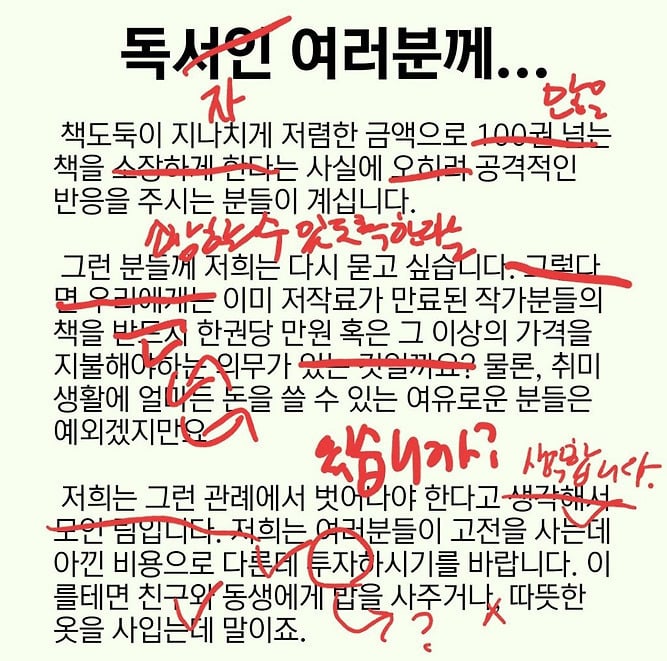 독서인 여러분께...
자
많은
책도둑이 지나치게 저렴한 금액으로 100권 넘는
책을 소장하게 한다는 사실에 오히려 공격적인
반응을 주시는 분들이 계십니다.
소장할 수 있도록 한다는
그런 분들께 저희는 다시 묻고 싶습니다. 그렇다
면 우리에게는 이미 저작료가 만료된 작가분들의
책을 반드시 한권당 만원 혹은 그 이상의 가격을
지불해야하는 의무가 있는 것일까요? 물론, 취미
생활에 얼마든 돈을 쓸 수 있는 여유로운 분들은
예외겠지만요
있습니까?
생각합니다.
저희는 그런 관례에서 벗어나야 한다고 생각해서
모인 팀입니다. 저희는 여러분들이 고전을 사는데
아낀 비용으로 다른데 투자하시기를 바랍니다. 이
를테면 친구와 동생에게 밥을 사주거나, 따뜻한
옷을 사입는데 말이죠.
?